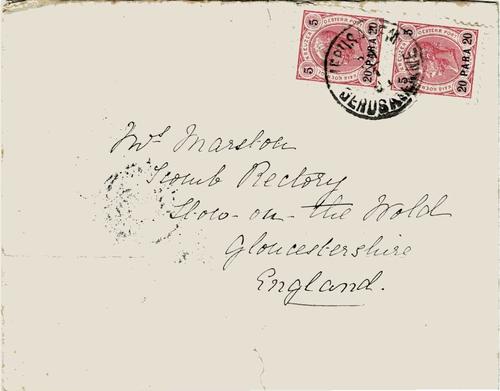 5 OESTERR. POST 5
20 PARA 20
5 OESTERR. POST 5
20 PARA 20
JERUSALEM
JERUSALEM
Mrs Marston
Icomb Rectory
Stow-on-the Wold
Gloucestershire
England.